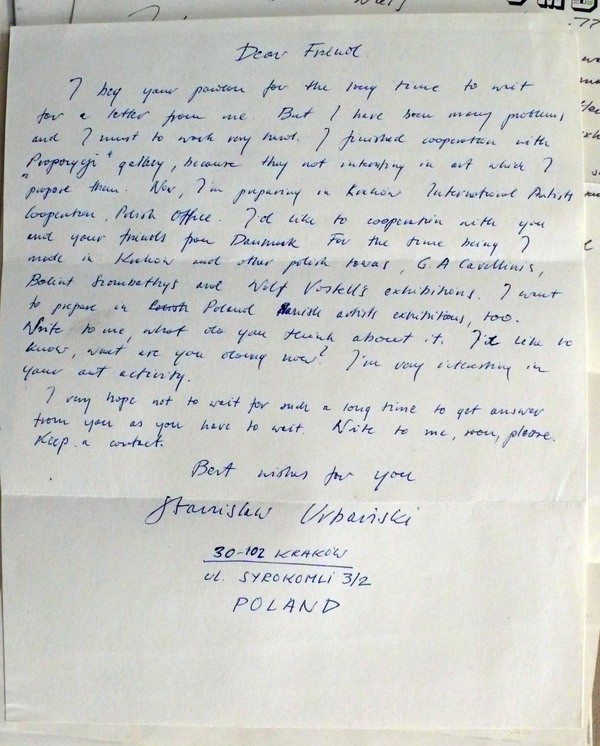 Dear Friend
I beg your pardon for the long time to wait
for a letter from me. But I have been many problems
and I must to work very hard. I finished cooperation with
"Propozycji" gallery, because they not interesting in art which I
propose them. Now, I'm preparing in Kraków International Artists
Cooperation, Polish Office. I'd like to cooperation with you
and your friends from Danmark For the time being I
made in Kraków and other polish towns, G.A Cavellinis,
Balint Szombathys and Wolf Vostell's exhibitions. I want
to prepare in Poland Danish artists exhibitions, too.
Write to me, what do you think about it. I'd like to
know, what are you doing now? I'm very interesting in
your art activity.
I very hope not to wait for such a long time to get answer
from you as you have to wait. Write to me, soon, please.
Keep a contact.
Best wishes for you
Stanisław Urbański
30-102 KRAKÓW
ul. SYROKOMLI 3/2
POLAND